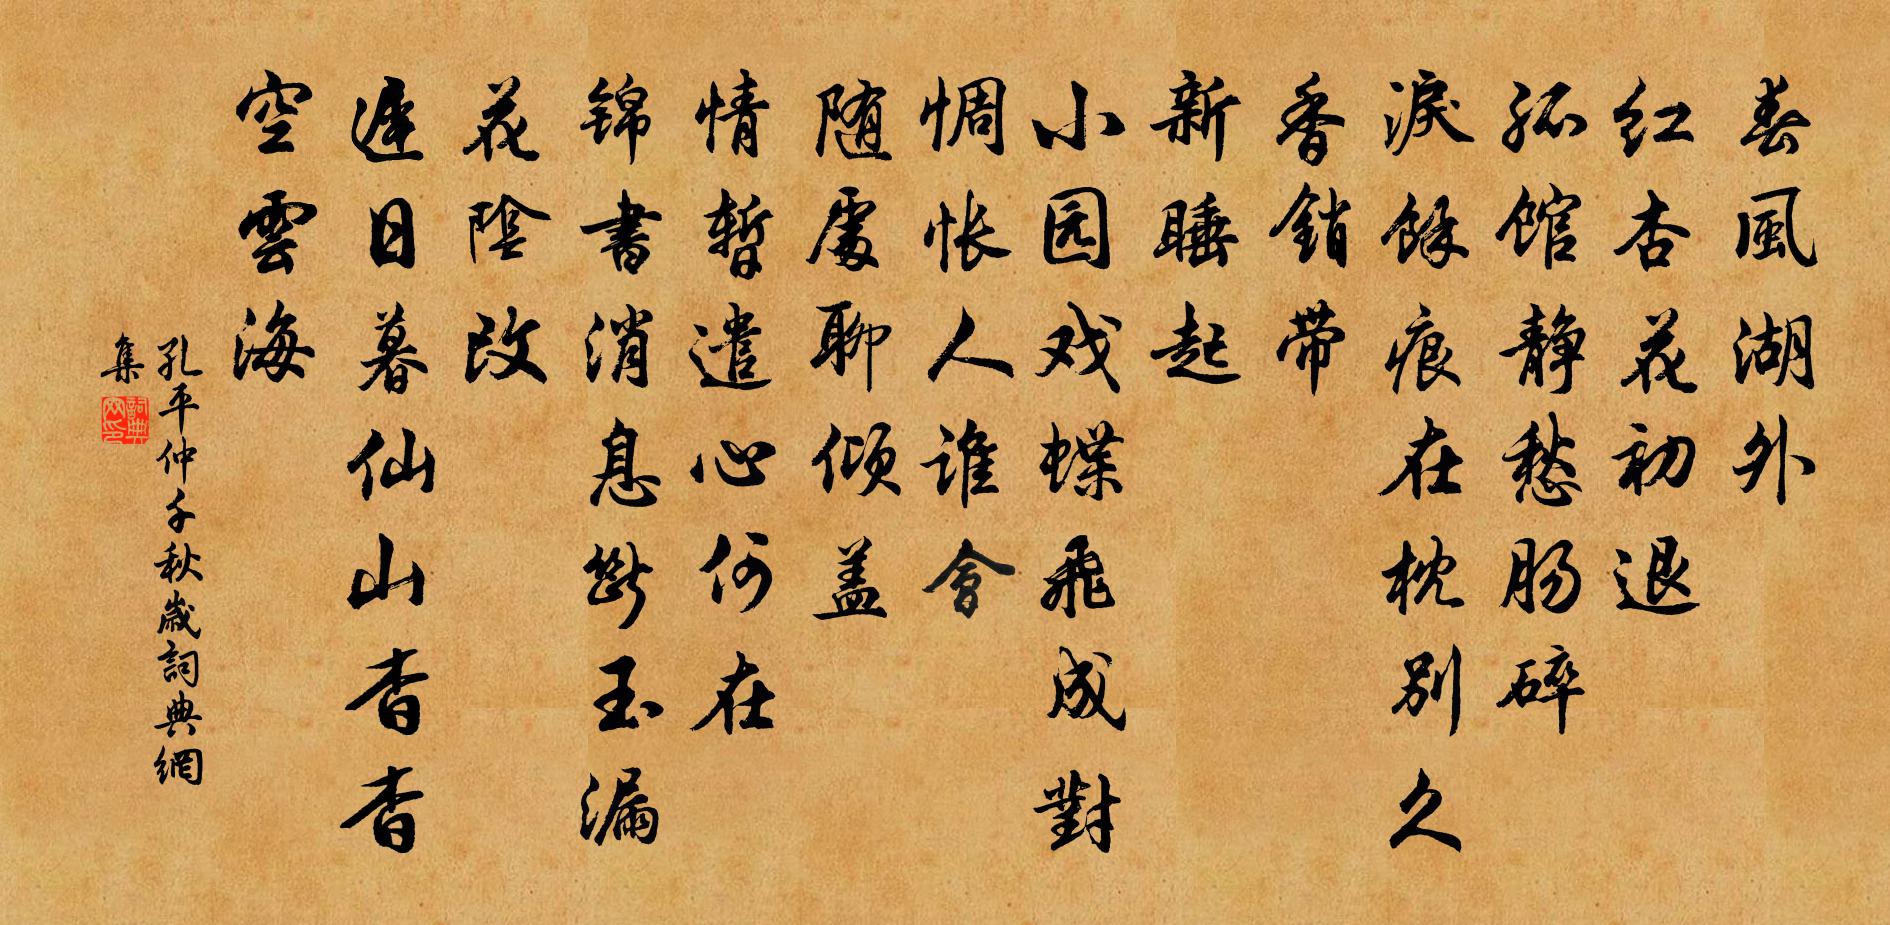 春風湖外
红杏花初退
孤馆静愁肠碎
淚餘痕在枕別久
香銷带
新睡起
小园戏蝶飛成對
惆怅人誰會
随處聊倾盖
情暫遣心何在
锦書消息断玉漏
花陰改
遲日暮仙山杳杳
空雲海
孔平仲千秋歲詞典網
集
詞典
网印